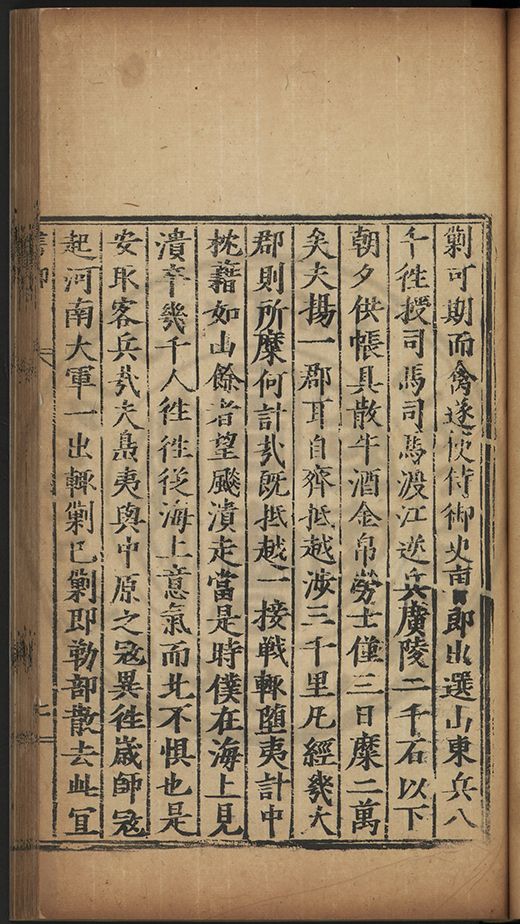 剿可期而禽遂使侍御史南　郎出選山東兵八
千徃授司馬司馬渡江逆兵廣陵二千石以下
朝夕供帳具散牛酒金帛勞士僅三日糜二萬
矣夫揚一郡耳自齊抵越海三千里凢經幾大
郡則所糜何計㢤既抵越一接戰輙墮夷計中
枕藉如山餘者望飈潰走當是時僕在海上見
潰卒幾千人徃徃從海上意氣而北不惧也是
安取客兵㢤夫島夷與中原之冦異徃嵗師冦
起河南大軍一出輙剿已剿即勒部散去此冝